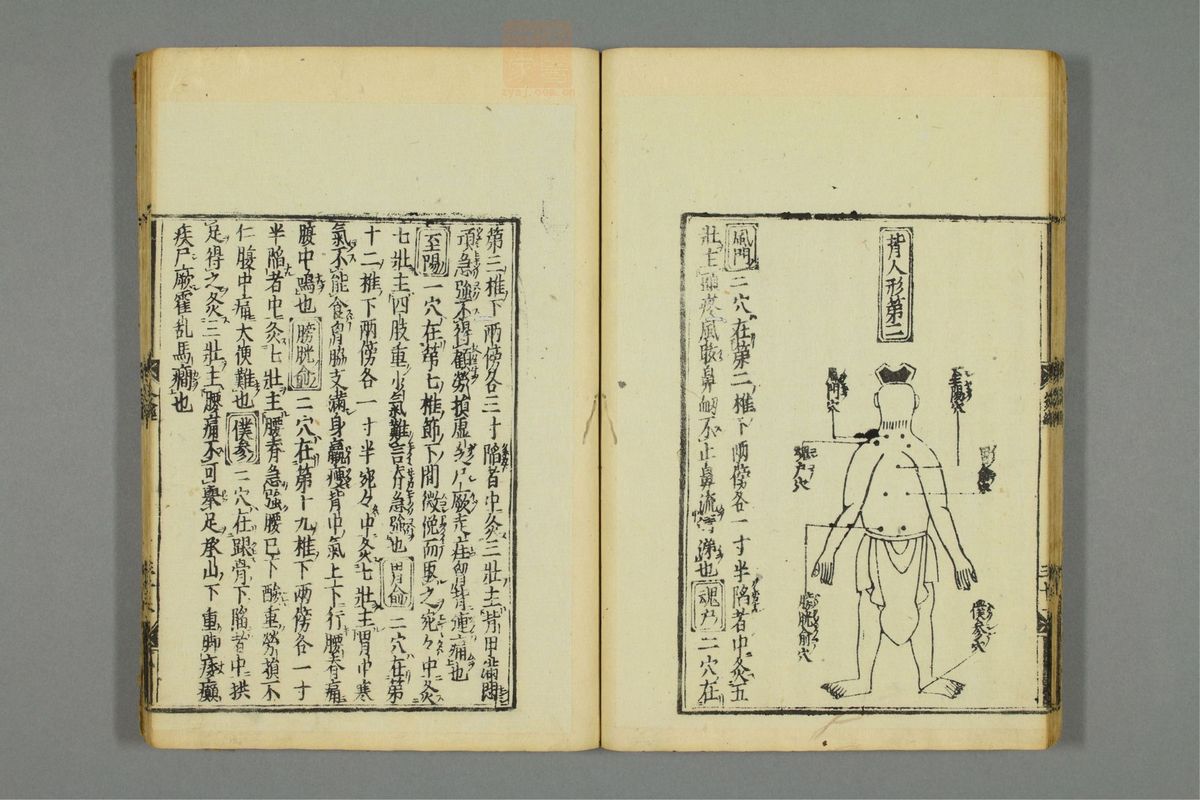 背人形第二
至陽穴
風門穴
胃俞穴
魂戶穴
膀胱俞穴
僕參穴
風門 二穴在第二椎下兩傍各一寸半陷者中灸五
壯主頭疼風眩鼻衂不止鼻流清涕也 魂戶 二穴在
第三椎下兩傍各三寸陷者中灸三壯主背甲滿悶
項急強不得顧勞損虛乏尸厥走疰胷背連痛也
至陽 一穴在第七椎節下間微俛而取之宛々中灸
七壯主四肢重少氣難言脊急強也 胃俞 二穴在第
十二椎下兩傍各一寸半宛々中灸七壯主胃中寒
氣不能食胷脇支滿身羸瘦背中氣上下行腰脊痛
腹中鳴也 膀胱俞 二穴在第十九椎下兩傍各一寸
半陷者中灸七壯主腰脊急強腰已下酸重勞損不
仁腹中痛大便難也 僕參 二穴在跟骨下陷者中拱
足得之灸三壯主腰痛不可舉足承山下重脚痿癲
疾尸厥霍乱馬癇也